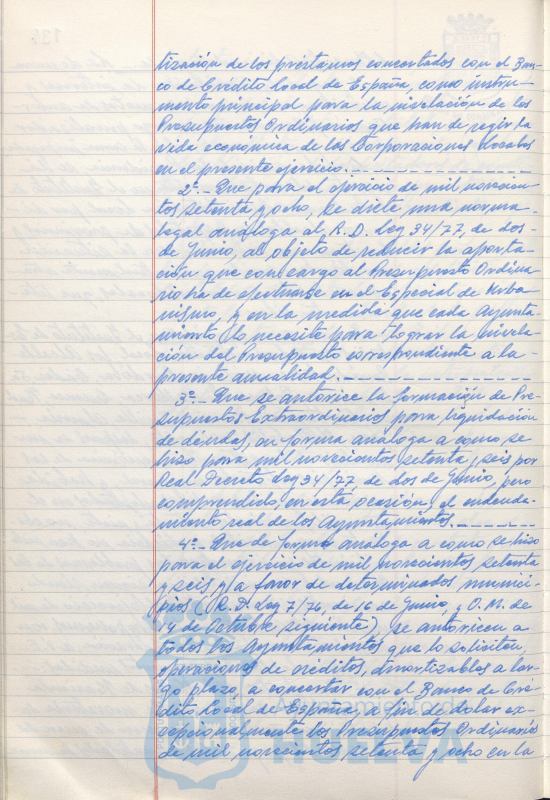 tización de los préstamos concertados con el Ban-
co de Crédito Local de España, como instru-
mento principal para la nivelación de los
Presupuestos Ordinarios que han de regir la
vida económica de las Corporaciones Locales
en el presente ejercicio.
2º.- Que para el ejercicio de mil novecien-
tos setenta y ocho, se dicte una norma
legal análoga al R.D. Ley 34/77, de dos
de Junio, al objeto de reducir la aporta-
ción que con cargo al Presupuesto Ordina-
rio ha de efectuarse en el Especial de Urba-
nismo, y en la medida que cada Ayunta-
miento lo necesite para lograr la nivela-
ción del Presupuesto correspondiente a la
presente anualidad.
3º.- Que se autorice la formación de Pre-
supuestos Extraordinarios para liquidación
de deudas, en forma análoga a como se
hizo para mil novecientos setenta y seis por
Real Decreto Ley 34/77, de dos de Junio, pero
comprendido, en esta ocasión, el endeuda-
miento real de los Ayuntamientos.
4º.- Que de forma análoga a como se hizo
para el ejercicio de mil novecientos setenta
y seis y a favor de determinados munici-
pios (R.D. Ley 7/76, de 16 de Junio, y O.M. de
14 de Octubre siguiente), se autoricen a
todos los Ayuntamientos que lo soliciten,
operaciones de créditos, amortizables a lar-
go plazo, a concertar con el Banco de Cré-
dito Local de España, a fin de dotar ex-
cepcionalmente los Presupuestos Ordinarios
de mil novecientos setenta y ocho en la
Ayuntamiento de
HUELVA